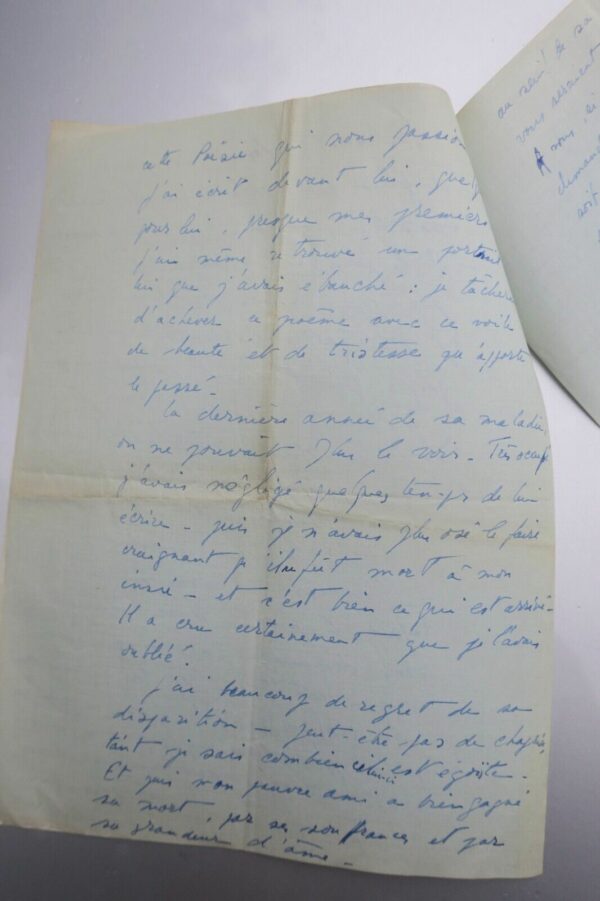 cette Poésie qui nous passion
j'ai écrit devant lui, quelq
pour lui, presque mes premiers
j'ai même retrouvé un portrait
lui que j'avais ébauché : je tâcherai
d'achever ce poème avec ce voile
de beauté et de tristesse qu'apporte
le passé.
La dernière année de sa maladie,
on ne pouvait plus le voir. Très occupé
j'avais négligé quelques temps de lui
écrire - puis je n'avais plus osé le faire
craignant qu'il fût mort à mon
insu - et c'est bien ce qui est arrivé -
Il a cru certainement que je l'avais
oublié.
J'ai beaucoup de regret de sa
disparition - peut-être pas de chagrin,
tant je sais combien celui-ci est égoïste.
Et puis mon pauvre ami a bien gagné
sa mort, par ses souffrances et par
sa grandeur d'âme -
au
sa
vous
A nous, si
soit